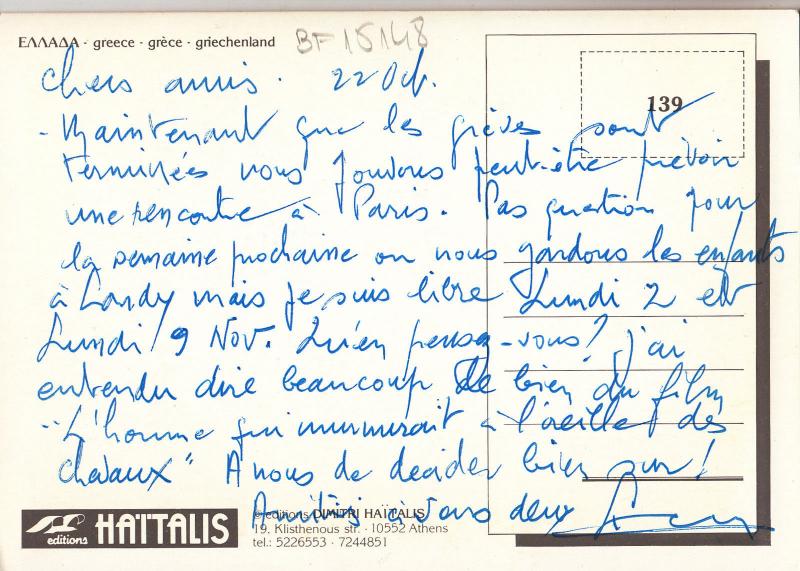 ΕΛΛΑΔΑ - greece - grèce - griechenland
BF 15148
139
Chers amis. 22 Oct.
- Maintenant que les grèves sont
terminées nous pouvons peut-être prévoir
une rencontre à Paris. Pas question pour
la semaine prochaine où nous gardons les enfants
à Lardy mais je suis libre Lundi 2 et
Lundi 9 Nov. Qu'en pensez-vous? J'ai
entendu dire beaucoup de bien du film
"L'homme qui murmurait à l'oreille des
chevaux" A nous de décider bien sur!
Amitiés à vous deux
editions HAÏTALIS
© editions DIMITRI HAÏTALIS
19, Klisthenous str. - 10552 Athens
tel.: 5226553 - 7244851